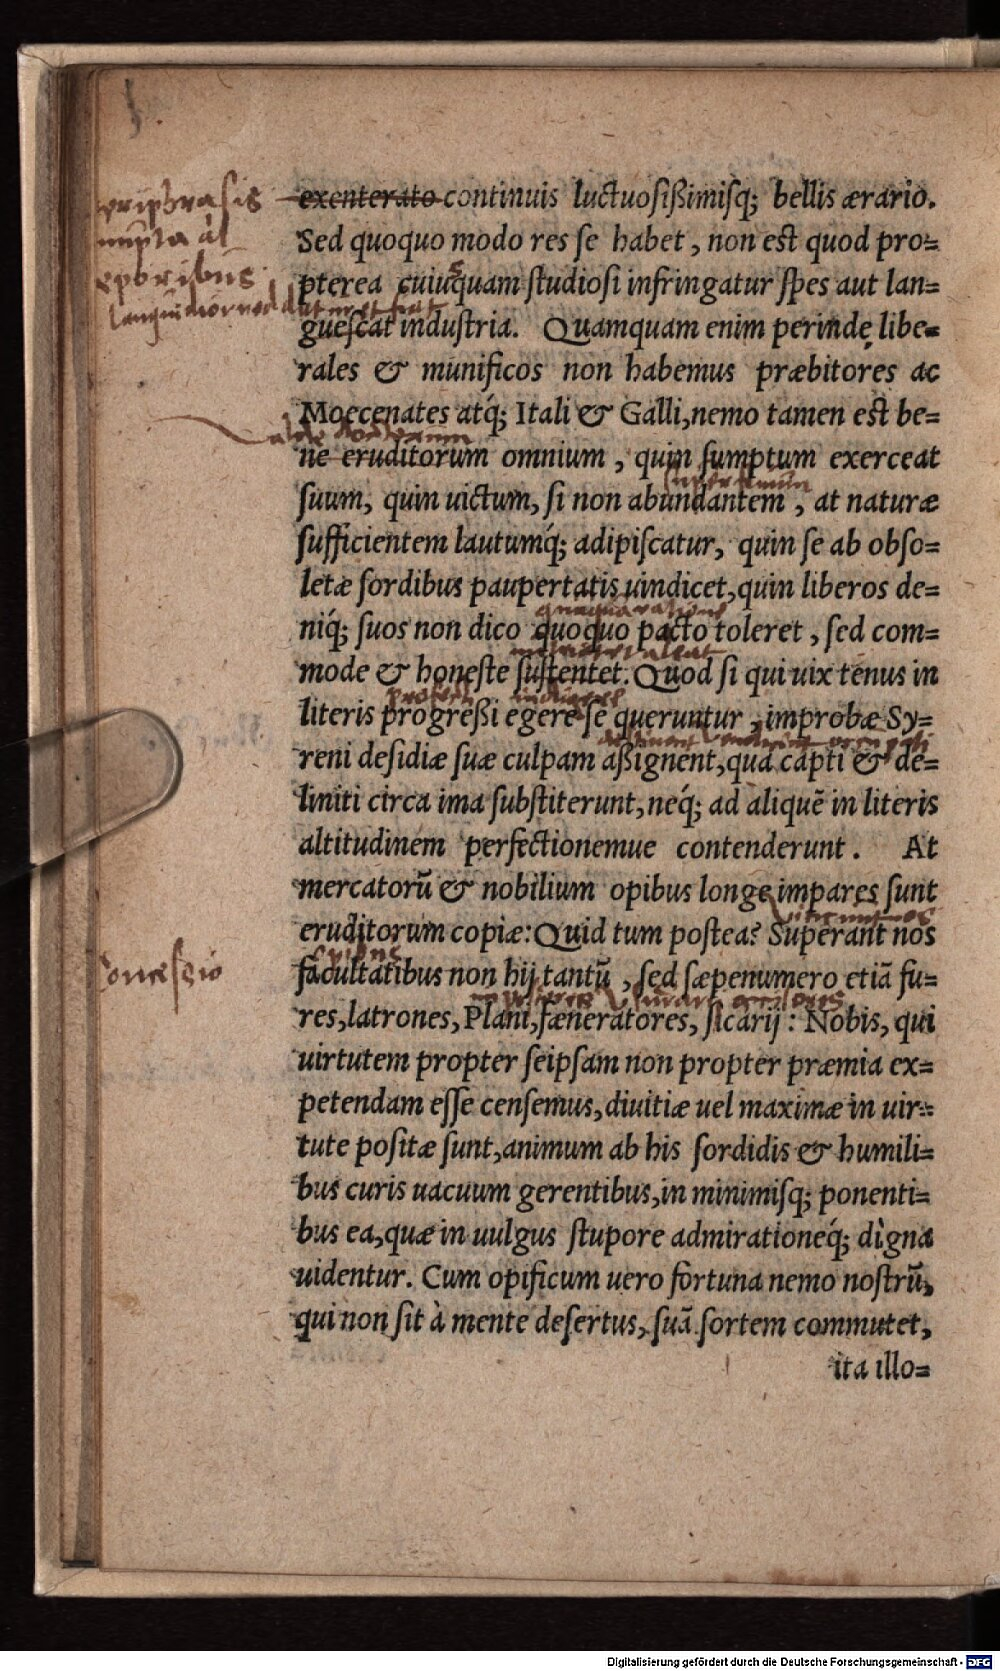 exenterato continuis luctuosißimisq; bellis ærario.
Sed quoquo modo res se habet, non est quod pro=
pterea cuiusquam studiosi infringatur spes aut lan=
guescat industria. Quamquam enim perinde libe=
rales & munificos non habemus præbitores ac
Moecenates atq́; Itali & Galli, nemo tamen est be=
ne eruditorum omnium, quin sumptum exerceat
suum, quin uictum, si non abundantem, at naturæ
sufficientem lautumq́; adipiscatur, quin se ab obso=
letæ sordibus paupertatis uindicet, quin liberos de=
niq́; suos non dico quoquo pacto toleret, sed com=
mode & honeste sustentet. Quod si qui uix tenus in
literis progreßi egere se queruntur, improbæ Sy=
reni desidiæ suæ culpam aßignent, qua capti & de=
liniti circa ima substiterunt, neq́; ad aliquē in literis
altitudinem perfectionemue contenderunt. At
mercatorū & nobilium opibus longe impares sunt
eruditorum copiæ: Quid tum postea? Superant nos
Concessio
facultatibus non hij tantū, sed sæpenumero etiā fu=
res, latrones, Plani, fæneratores, sicarij: Nobis, qui
uirtutem propter seipsam non propter præmia ex=
petendam esse censemus, diuitiæ uel maximæ in uir=
tute positæ sunt, animum ab his sordidis & humili=
bus curis uacuum gerentibus, in minimisq; ponenti=
bus ea, quæ in uulgus stupore admirationeq́; digna
uidentur. Cum opificum uero fortuna nemo nostrū,
qui non sit à mente desertus, suā sortem commutet,
ita illo=
Digitalisierung gefördert durch die Deutsche Forschungsgemeinschaft - DFG